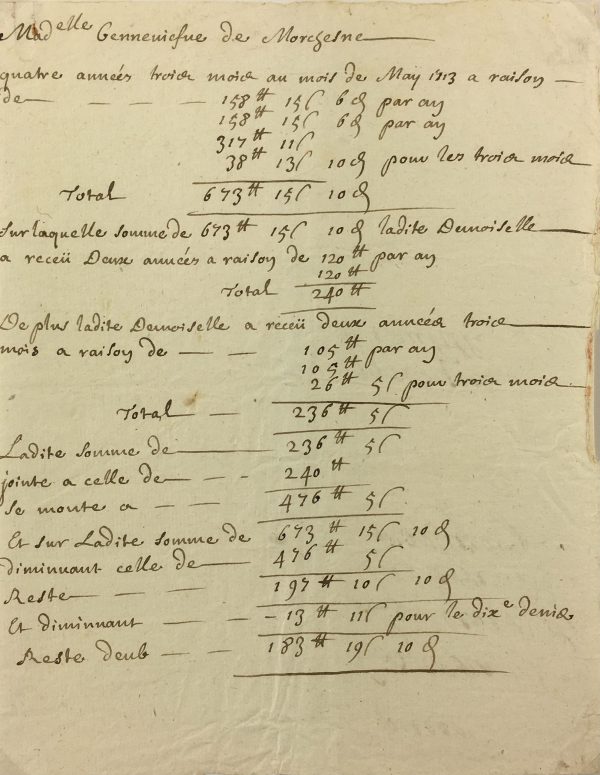 Mad^elle Genneviefue de Morchesne
quatre années trois mois au mois de May 1713 a raison
de — — — — 158tt 15ſ 6d par an
158tt 15ſ 6d par an
317tt 11ſ
38tt 13ſ 10d pour les trois mois
Total 673tt 15ſ 10d
Sur laquelle somme de 673tt 15ſ 10d ladite Demoiselle
a receü Deux années a raison de 120tt par an
120tt
Total 240tt
De plus ladite Demoiselle a receü deux années trois
mois a raison de — — — 105tt par an
105tt
26tt 5ſ pour trois mois
Total — 236tt 5ſ
Ladite somme de — 236tt 5ſ
jointe a celle de — - - 240tt
se monte a — — 476tt 5ſ
Et sur Ladite somme de 673tt 15ſ 10d
diminuant celle de — 476tt 5ſ
Reste — — — 197tt 10ſ 10d
Et diminnant — — - 13tt 11ſ pour le dix^e denie
Reste deub — — 183tt 19ſ 10d